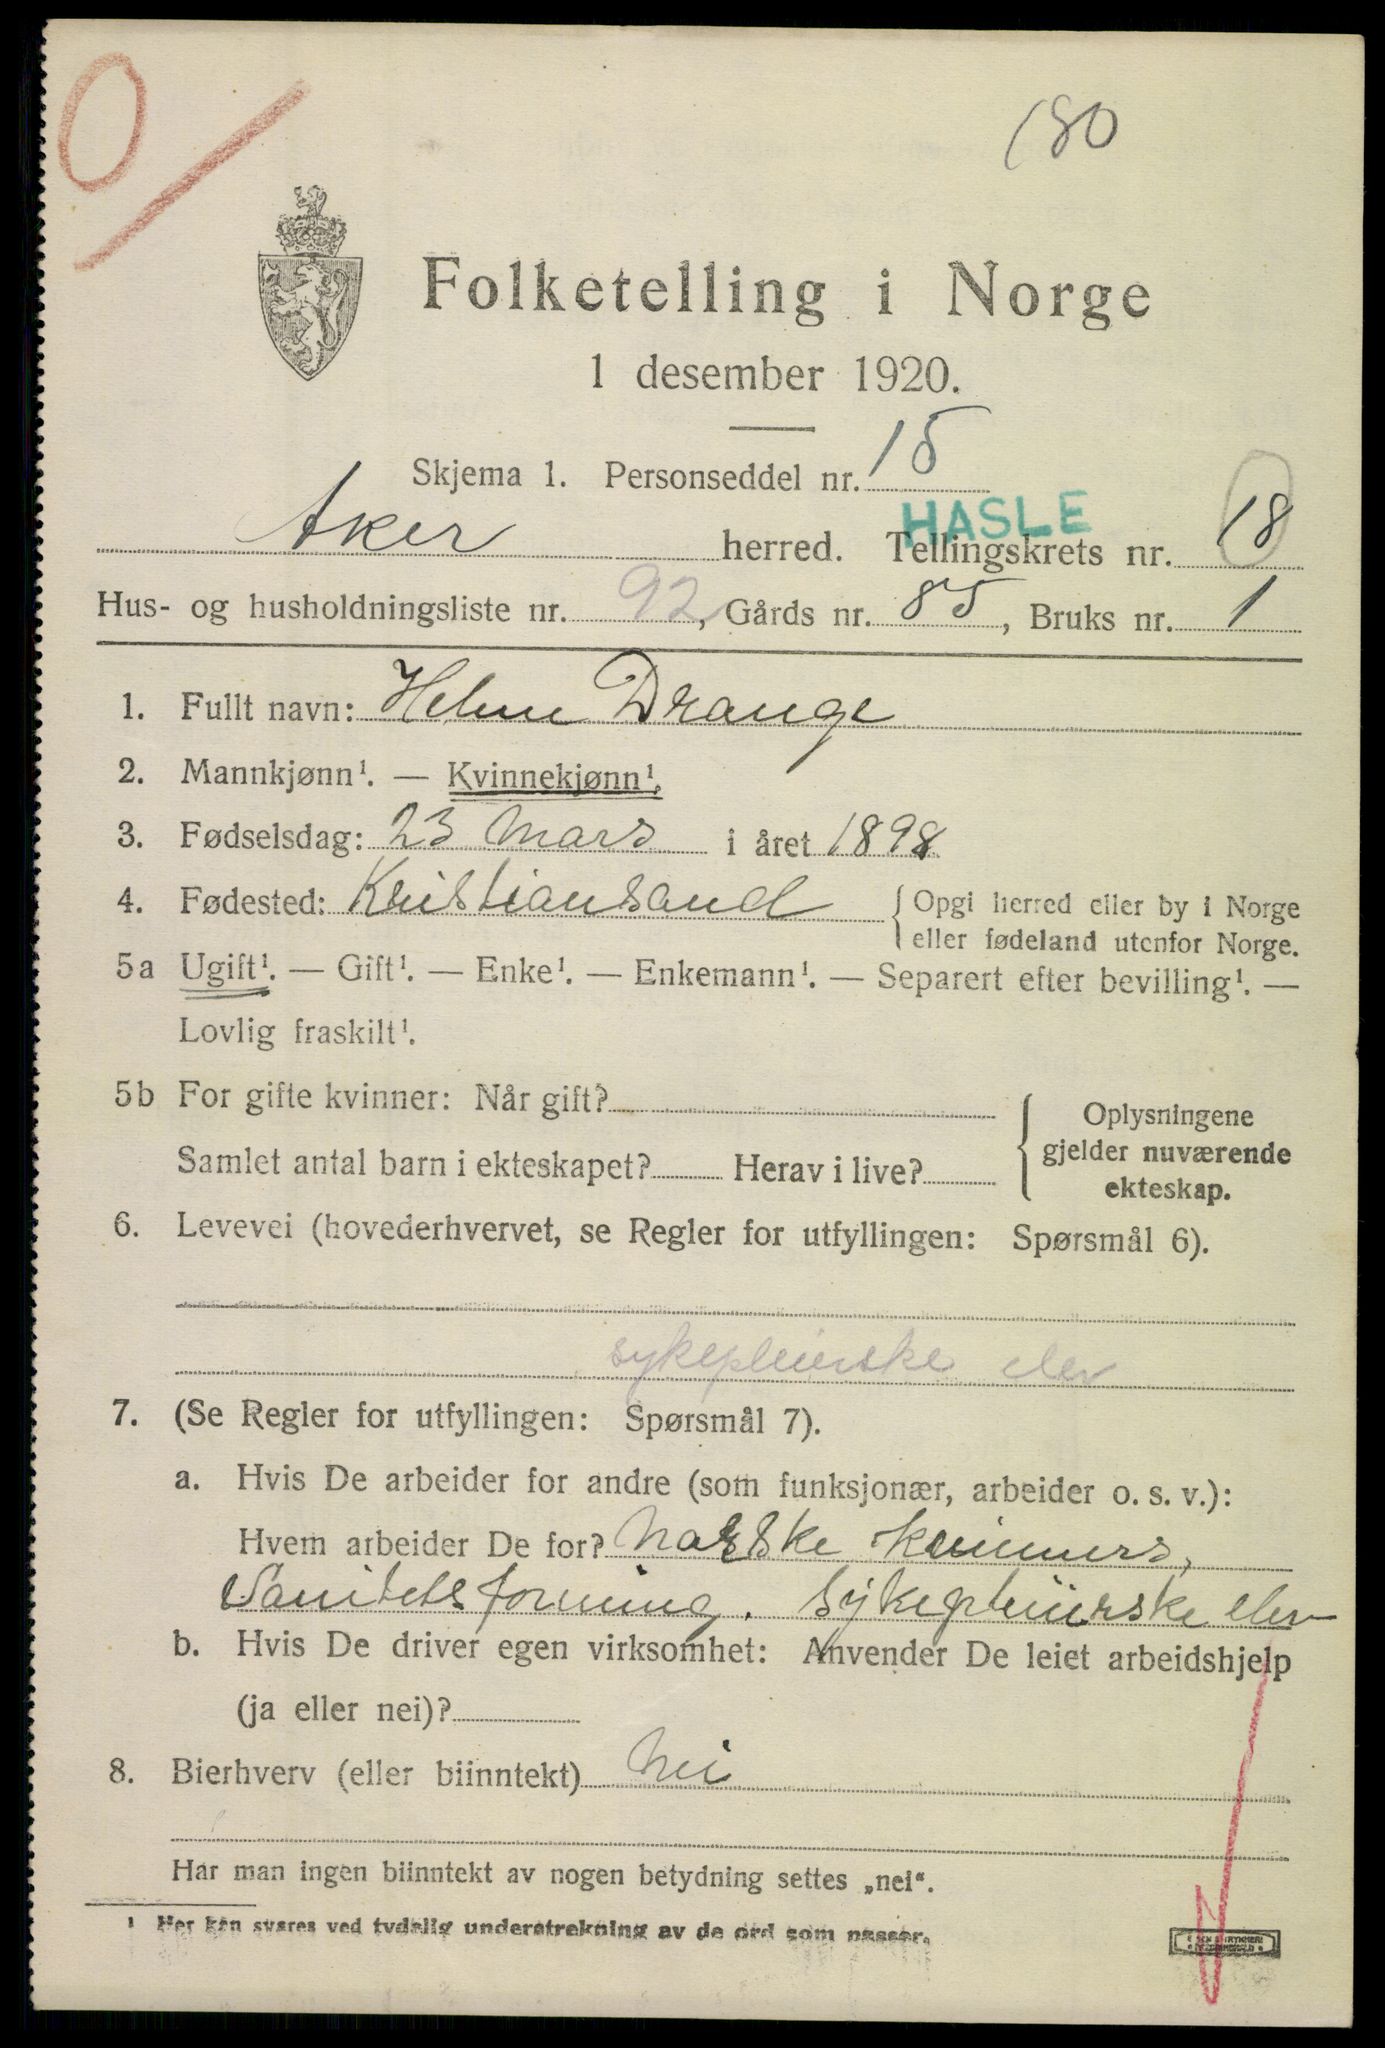 0/
180
Folketelling i Norge
1 desember 1920.
Skjema 1. Personseddel nr. 15
HASLE
Aker herred. Tellingskrets nr. 18
Hus- og husholdningsliste nr. 92, Gårds nr. 85, Bruks nr. 1
1. Fullt navn: Helene Drange
2. Mannkjønn¹. — Kvinnekjønn¹.
3. Fødselsdag: 23 Mars i året 1898.
4. Fødested: Kristiansand { Opgi herred eller by i Norge
eller fødeland utenfor Norge.
5a Ugift¹. — Gift¹. — Enke¹. — Enkemann¹. — Separert efter bevilling¹. —
Lovlig fraskilt¹.
5b For gifte kvinner: Når gift?
Samlet antal barn i ekteskapet? Herav i live?
{ Oplysningene
gjelder nuværende
ekteskap.
6. Levevei (hovederhvervet, se Regler for utfyllingen: Spørsmål 6).
sykepleierske elev
7. (Se Regler for utfyllingen: Spørsmål 7).
a. Hvis De arbeider for andre (som funksjonær, arbeider o. s. v.):
Hvem arbeider De for? Norske kvinners,
Sanitetsforening. Sykepleierske elev
b. Hvis De driver egen virksomhet: Anvender De leiet arbeidshjelp
(ja eller nei)?
8. Bierhverv (eller biinntekt) Nei
Har man ingen biinntekt av nogen betydning settes „nei“.
¹ Her kan svares ved tydelig understrekning av de ord som passer.